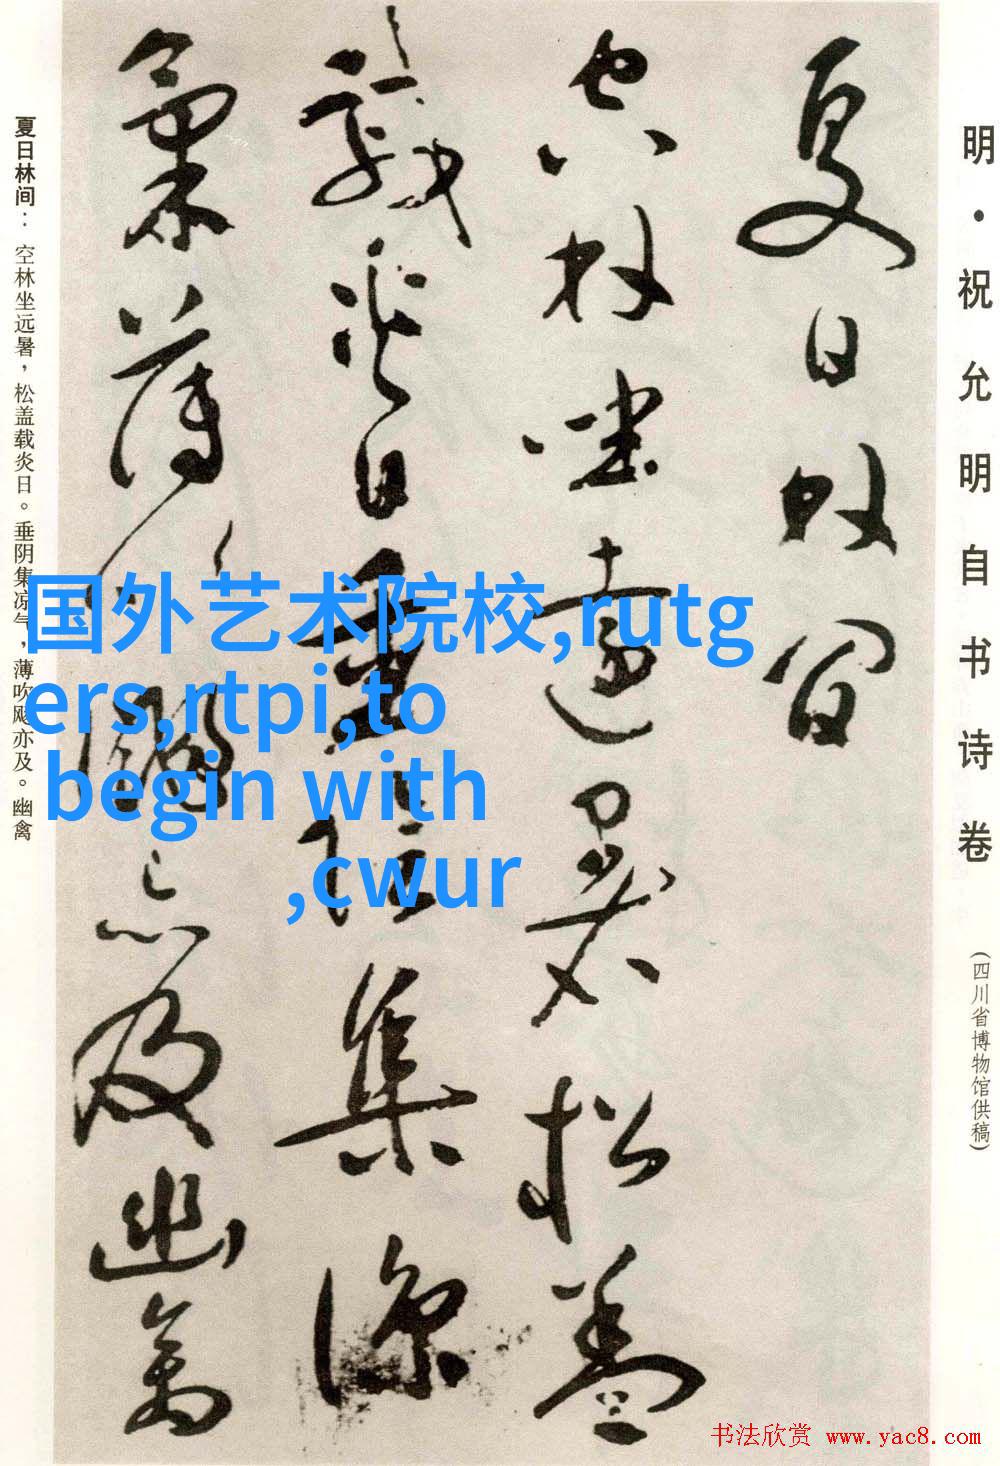 明·祝允明自书诗卷
(四川省博物馆供稿)
夏日林间
空林坐远暑松盖
载炎日垂阴集凉
气薄吹飔亦及幽禽
夏日林间：空林坐远暑，松盖载炎日。垂阴集凉气，薄吹飔亦及。幽禽
国外艺术院校,rutg
ers,rtpi,to
begin with
,cwur
书法欣赏 www.yac8.com